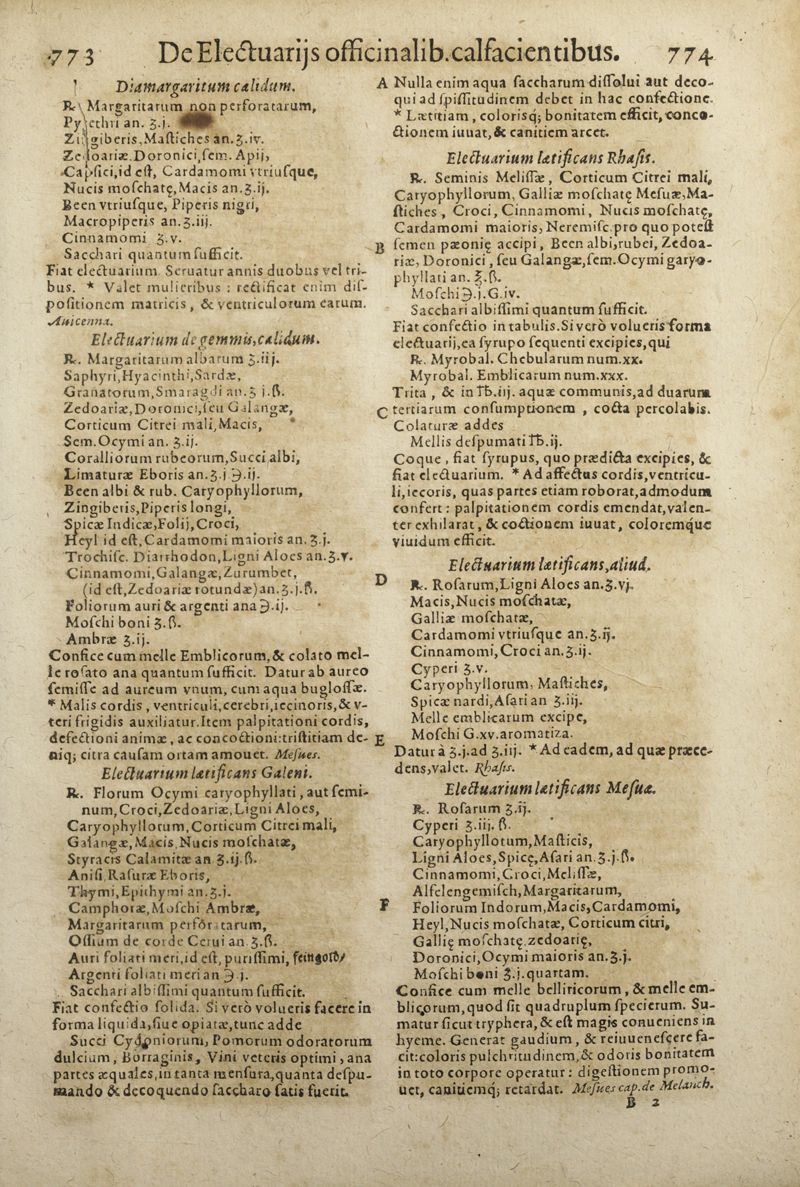 773 De Electuarijs officinalib.calfacientibus. 774
Diamargaritum calidum.
℞ Margaritarum non perforatarum,
Pyrethri an. ʒ.j.
Zingiberis,Mastiches an.ʒ.iv.
Zedoariæ.Doronici,sem. Apij,
Capsici,id est, Cardamomi vtriusque,
Nucis moschatę,Macis an.ʒ.ij.
Been vtriusque, Piperis nigri,
Macropiperis an.ʒ.iij.
Cinnamomi ʒ.v.
Sacchari quantum sufficit.
Fiat electuarium. Seruatur annis duobus vel tri-
bus. * Valet mulieribus : rectificat enim dis-
positionem matricis, & ventriculorum earum.
Auicenna.
Electuarium de gemmis,calidum.
℞. Margaritarum albarum ʒ.iij.
Saphyri,Hyacinthi,Sardæ,
Granatorum,Smaragdi an.ʒ j.ß.
Zedoariæ,Doronici,seu Galangæ,
Corticum Citrei mali,Macis,
Sem.Ocymi an. ʒ.ij.
Coralliorum rubeorum,Succi albi,
Limaturæ Eboris an.ʒ.j ℈.ij.
Been albi & rub. Caryophyllorum,
Zingiberis,Piperis longi,
Spicæ Indicæ,Folij,Croci,
Heyl id est,Cardamomi maioris an.ʒ.j.
Trochisc. Diarrhodon,Ligni Aloes an.ʒ.v.
Cinnamomi,Galangæ,Zurumbet,
(id est,Zedoariæ rotundæ)an.ʒ.j.ß.
Foliorum auri & argenti ana ℈.ij.
Moschi boni ʒ.ß.
Ambræ ʒ.ij.
Confice cum melle Emblicorum,& colato mel-
le rosato ana quantum sufficit. Datur ab aureo
semisse ad aureum vnum, cum aqua buglossæ.
* Malis cordis , ventriculi,cerebri,iecinoris,& v-
teri frigidis auxiliatur.Item palpitationi cordis,
defectioni animæ , ac concoctioni:tristitiam de- E
niq; citra causam ortam amouet. Mesues.
Electuarium lætificans Galeni.
℞. Florum Ocymi caryophyllati , aut semi-
num,Croci,Zedoariæ,Ligni Aloes,
Caryophyllorum,Corticum Citrei mali,
Galangæ,Macis,Nucis moschatæ,
Styracis Calamitæ an ʒ.ij.ß.
Anisi,Rasuræ Eboris,
Thymi,Epithymi an.ʒ.j.
Camphoræ,Moschi Ambræ,
Margaritarum perforatarum,
Ossium de corde Cerui an.ʒ.ß.
Auri foliati meri,id est, purissimi, feingold/
Argenti foliati meri an ℈ j.
Sacchari albissimi quantum sufficit.
Fiat confectio solida. Si verò volueris facere in
forma liquida,siue opiatæ,tunc adde
Succi Cydoniorum, Pomorum odoratorum
dulcium , Borraginis, Vini veteris optimi , ana
partes æquales,in tanta mensura,quanta despu-
mando & decoquendo saccharo satis fuerit.
A Nulla enim aqua saccharum dissolui aut deco-
qui ad spissitudinem debet in hac confectione.
* Lætitiam , colorisq; bonitatem efficit, conco-
ctionem iuuat,& canitiem arcet.
Electuarium lætificans Rhasis.
℞. Seminis Melissæ, Corticum Citrei mali,
Caryophyllorum, Galliæ moschatę Mesuæ,Ma-
stiches , Croci,Cinnamomi, Nucis moschatę,
Cardamomi maioris, Neremisc.pro quo potest
B semen pæonię accipi, Been albi,rubei, Zedoa-
riæ, Doronici, seu Galangæ,sem.Ocymi garyo-
phyllati an. ℥.ß.
Moschi ℈.j.G.iv.
Sacchari albissimi quantum sufficit.
Fiat confectio in tabulis.Si verò volueris forma
electuarij,ea syrupo sequenti excipies,qui
℞. Myrobal. Chebularum num.xx.
Myrobal. Emblicarum num.xxx.
Trita , & in ℔.iij. aquæ communis,ad duarum
C tertiarum consumptionem , cocta percolabis.
Colaturæ addes
Mellis despumati ℔.ij.
Coque , fiat syrupus, quo prædicta excipies, &
fiat electuarium. * Ad affectus cordis,ventricu-
li,iecoris, quas partes etiam roborat,admodum
confert : palpitationem cordis emendat,valen-
ter exhilarat, & coctionem iuuat, coloremque
viuidum efficit.
Electuarium lætificans,aliud.
D ℞. Rosarum,Ligni Aloes an.ʒ.vj.
Macis,Nucis moschatæ,
Galliæ moschatæ,
Cardamomi vtriusque an.ʒ.ij.
Cinnamomi,Croci an.ʒ.ij.
Cyperi ʒ.v.
Caryophyllorum, Mastiches,
Spicæ nardi,Asari an ʒ.iij.
Melle emblicarum excipe,
Moschi G.xv.aromatiza.
Datur à ʒ.j.ad ʒ.iij. * Ad eadem, ad quæ præce-
dens,valet. Rhasis.
Electuarium lætificans Mesuæ.
℞. Rosarum ʒ.ij.
Cyperi ʒ.iij.ß.
Caryophyllorum,Masticis,
Ligni Aloes,Spicę,Asari an.ʒ.j.ß.
Cinnamomi,Croci,Melissæ,
Alfelengemisch,Margaritarum,
F Foliorum Indorum,Macis,Cardamomi,
Heyl,Nucis moschatæ, Corticum citri,
Gallię moschatę zedoarię,
Doronici,Ocymi maioris an.ʒ.j.
Moschi boni ʒ.j.quartam.
Confice cum melle belliricorum , & melle em-
blicorum,quod sit quadruplum specierum. Su-
matur sicut tryphera, & est magis conueniens in
hyeme. Generat gaudium , & reiuuenescere fa-
cit:coloris pulchritudinem,& odoris bonitatem
in toto corpore operatur : digestionem promo-
uet, canitiemq; retardat. Mesues cap.de Melanch.
B 2